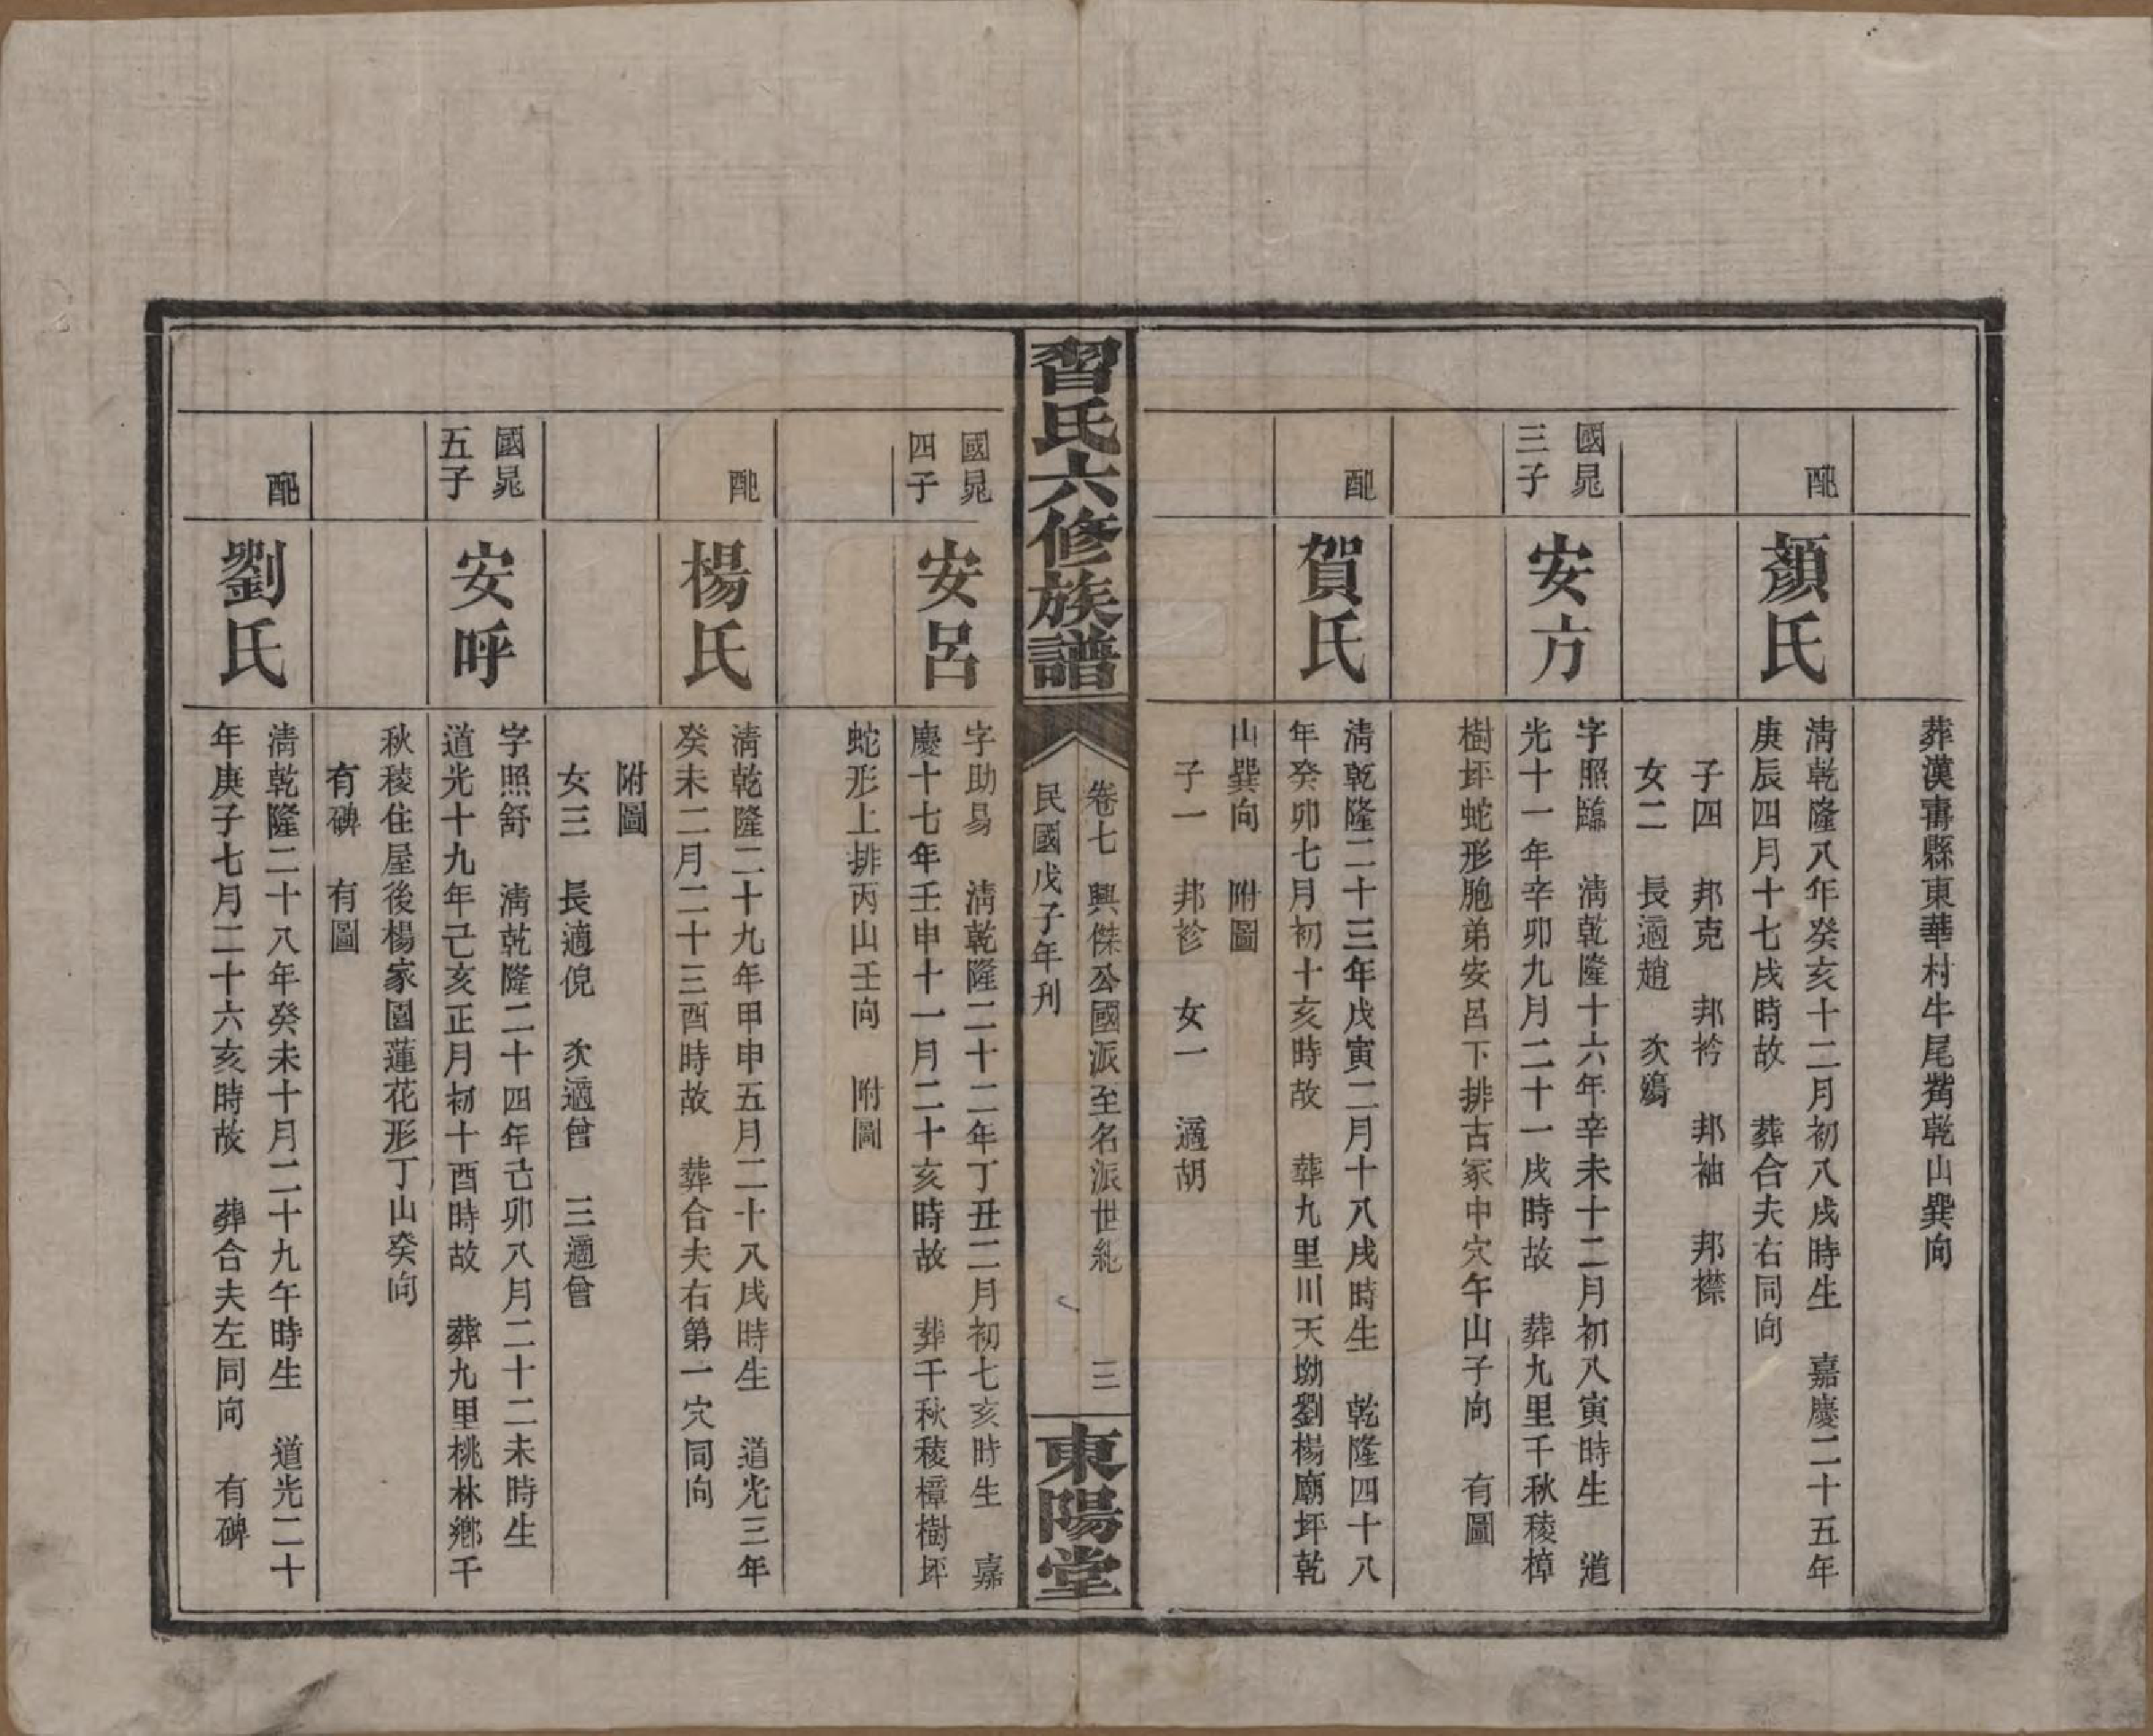 葬漢壽縣東華村牛尾觜乾山巽向
配
顏氏
清乾隆八年癸亥十二月初八戌時生　嘉慶二十五年
庚辰四月十七戌時故　葬合夫右同向
子四　邦克　邦衿　邦袖　邦襟
女二　長適趙　次殤
國晃
三子
安方
字照臨　清乾隆十六年辛未十二月初八寅時生　道
光十一年辛卯九月二十一戌時故　葬九里千秋稜樟
樹坪蛇形胞弟安呂下排古冢中穴午山子向　有圖
配
賀氏
清乾隆二十三年戊寅二月十八戌時生　乾隆四十八
年癸卯七月初十亥時故　葬九里川天坳劉楊廟坪乾
山巽向　附圖
子一　邦袗　女一　適胡
習氏六修族譜
卷七　興傑公國派至名派世紀　三
民國戊子年刊
東陽堂
國晃
四子
安呂
字助易　清乾隆二十二年丁丑二月初七亥時生　嘉
慶十七年壬申十一月二十亥時故　葬千秋稜樟樹坪
蛇形上排丙山壬向　附圖
配
楊氏
清乾隆二十九年甲申五月二十八戌時生　道光三年
癸未二月二十三酉時故　葬合夫右第一穴同向
附圖
女三　長適倪　次適曾　三適曾
國晃
五子
安呼
字照舒　清乾隆二十四年己卯八月二十二未時生
道光十九年己亥正月初十酉時故　葬九里桃林鄉千
秋稜住屋後楊家園蓮花形丁山癸向
有碑　有圖
配
劉氏
清乾隆二十八年癸未十月二十九午時生　道光二十
年庚子七月二十六亥時故　葬合夫左同向　有碑